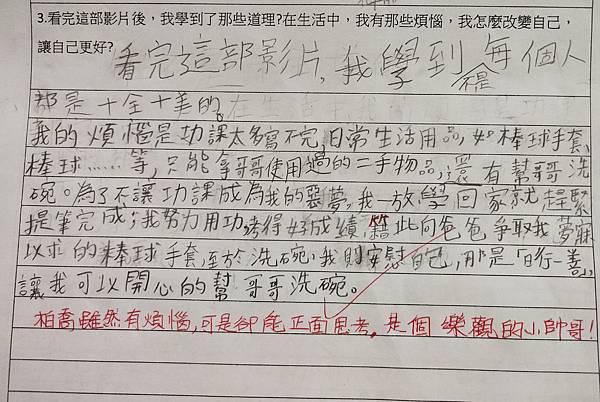 3.看完這部影片後，我學到了那些道理?在生活中，我有那些煩惱，我怎麼改變自己，
讓自己更好?看完這部影片，我學到不是每個人
都是十全十美的。
我的煩惱是功課太多寫不完，日常生活用品，如棒球手套、
棒球……等，只能拿哥哥使用過的二手物品，還有幫哥哥洗
碗。為了不讓功課成為我的惡夢，我一放學回家就趕緊
提筆完成；我努力用功考得好成績，藉此向爸爸爭取我夢寐
以求的棒球手套，至於洗碗，我則安慰自己，那是「日行一善」，
讓我可以開心的幫哥哥洗碗。
柏喬雖然有煩惱，可是卻能正面思考，是個樂觀的小帥哥！